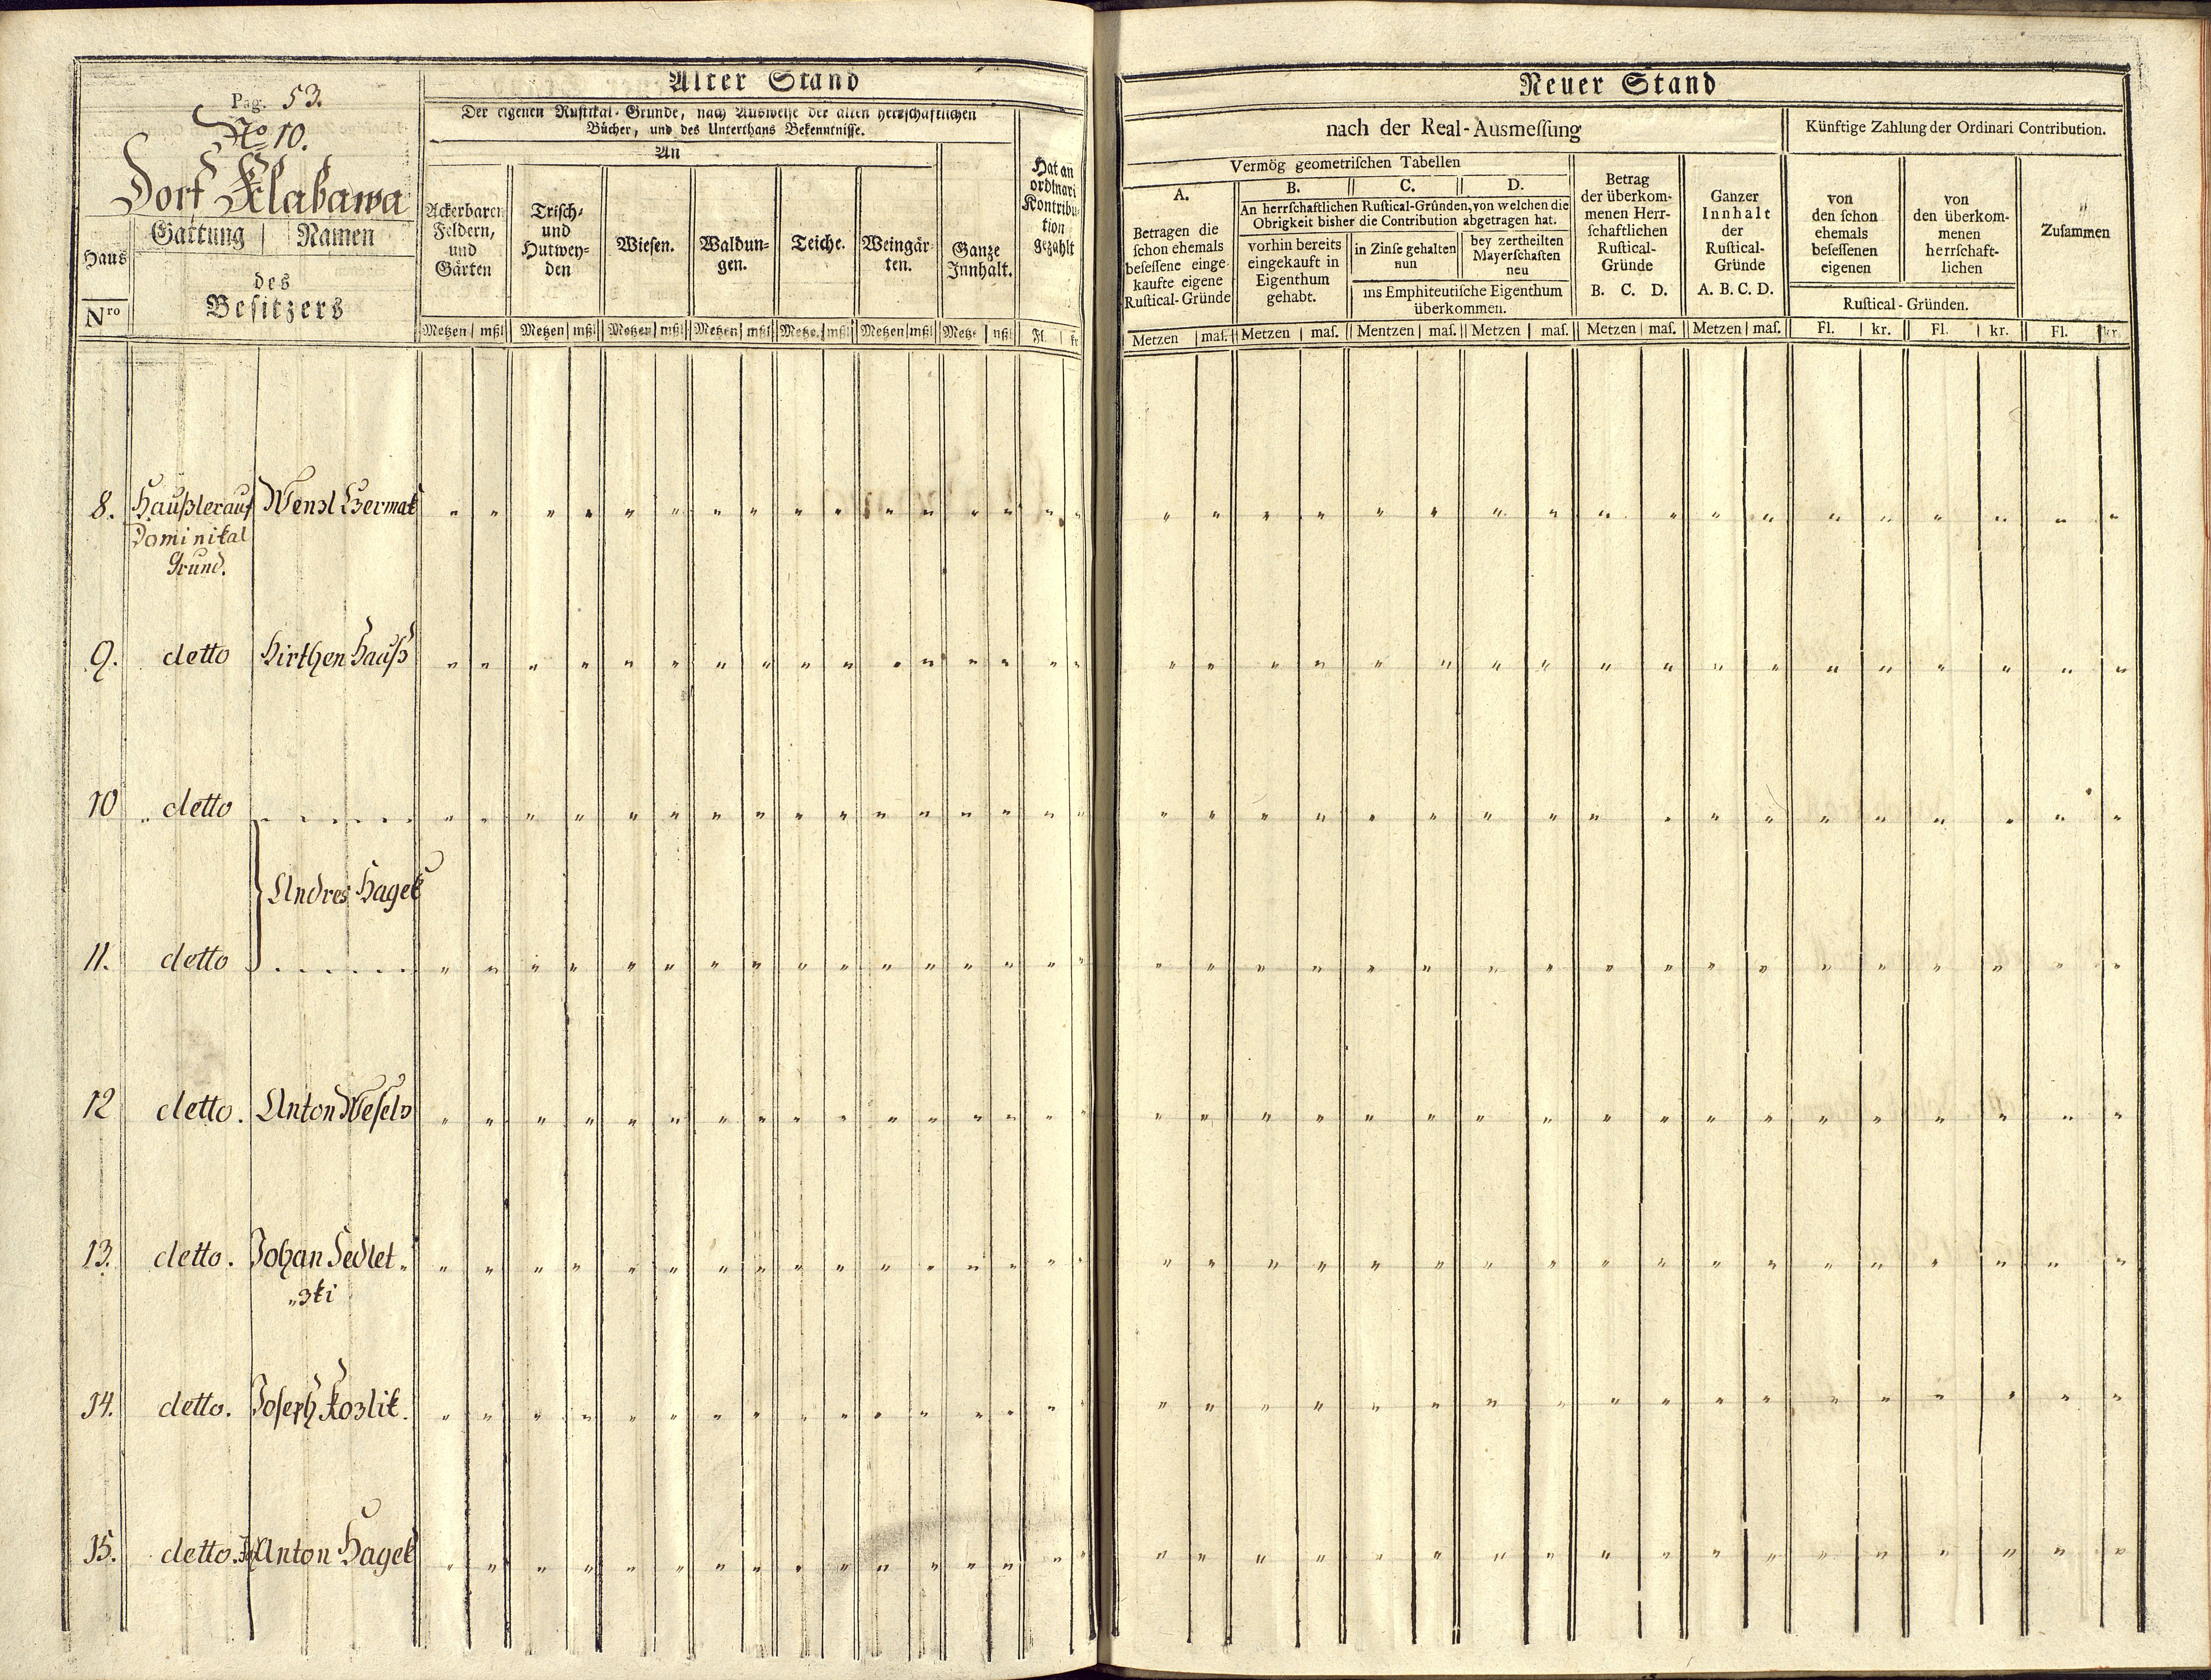 Pag. 53.
No 10.
Dorf Klabawa
Haus
Nro
Gattung | Namen
des
Besitzers
Alter Stand
Der eigenen Rustikal-Gründe, nach Ausweise der alten herrschaftlichen
Bücher, und des Unterthans Bekenntnisse.
An
Ackerbaren
Feldern,
und
Gärten
Trisch-
und
Hutwey-
den
Wiesen.
Waldun-
gen.
Teiche.
Weingär-
ten.
Ganze
Innhalt.
Hat an
ordinari
Kontribu-
tion
gezahlt
Metzen | mßl | Metzen | mßl | Metzen | mßl | Metzen | mßl | Metze. | mßl | Metzen | mßl | Metze | mßl | Fl. | kr
Neuer Stand
nach der Real-Ausmeſſung
Künftige Zahlung der Ordinari Contribution.
Vermög geometriſchen Tabellen
A.
Betragen die
ſchon ehemals
beſeſſene einge-
kaufte eigene
Ruſtical-Gründe
B. C. D.
An herrſchaftlichen Ruſtical-Gründen, von welchen die
Obrigkeit bisher die Contribution abgetragen hat.
vorhin bereits
eingekauft in
Eigenthum
gehabt.
in Zinſe gehalten
nun
bey zertheilten
Mayerſchaften
neu
ins Emphiteutiſche Eigenthum
überkommen.
Betrag
der überkom-
menen Herr-
ſchaftlichen
Ruſtical-
Gründe
B. C. D.
Ganzer
Innhalt
der
Ruſtical-
Gründe
A. B. C. D.
von
den ſchon
ehemals
beſeſſenen
eigenen
von
den überkom-
menen
herrſchaft-
lichen
Ruſtical-Gründen.
Zuſammen
Metzen | maſ. | Metzen | maſ. | Mentzen | maſ. | Metzen | maſ. | Metzen | maſ. | Metzen | maſ. | Fl. | kr. | Fl. | kr. | Fl. | kr.
8. Haußler auf Wenzl Czermak
Dominikal
Grund.
9. detto Hirthen Hauß
10 detto
Andres Hagek
11. detto
12 detto. Anton Weselÿ
13. detto. Johan Sedlet„
„zki
14. detto. Joseph Kozlik.
15. detto. Anton Hagek